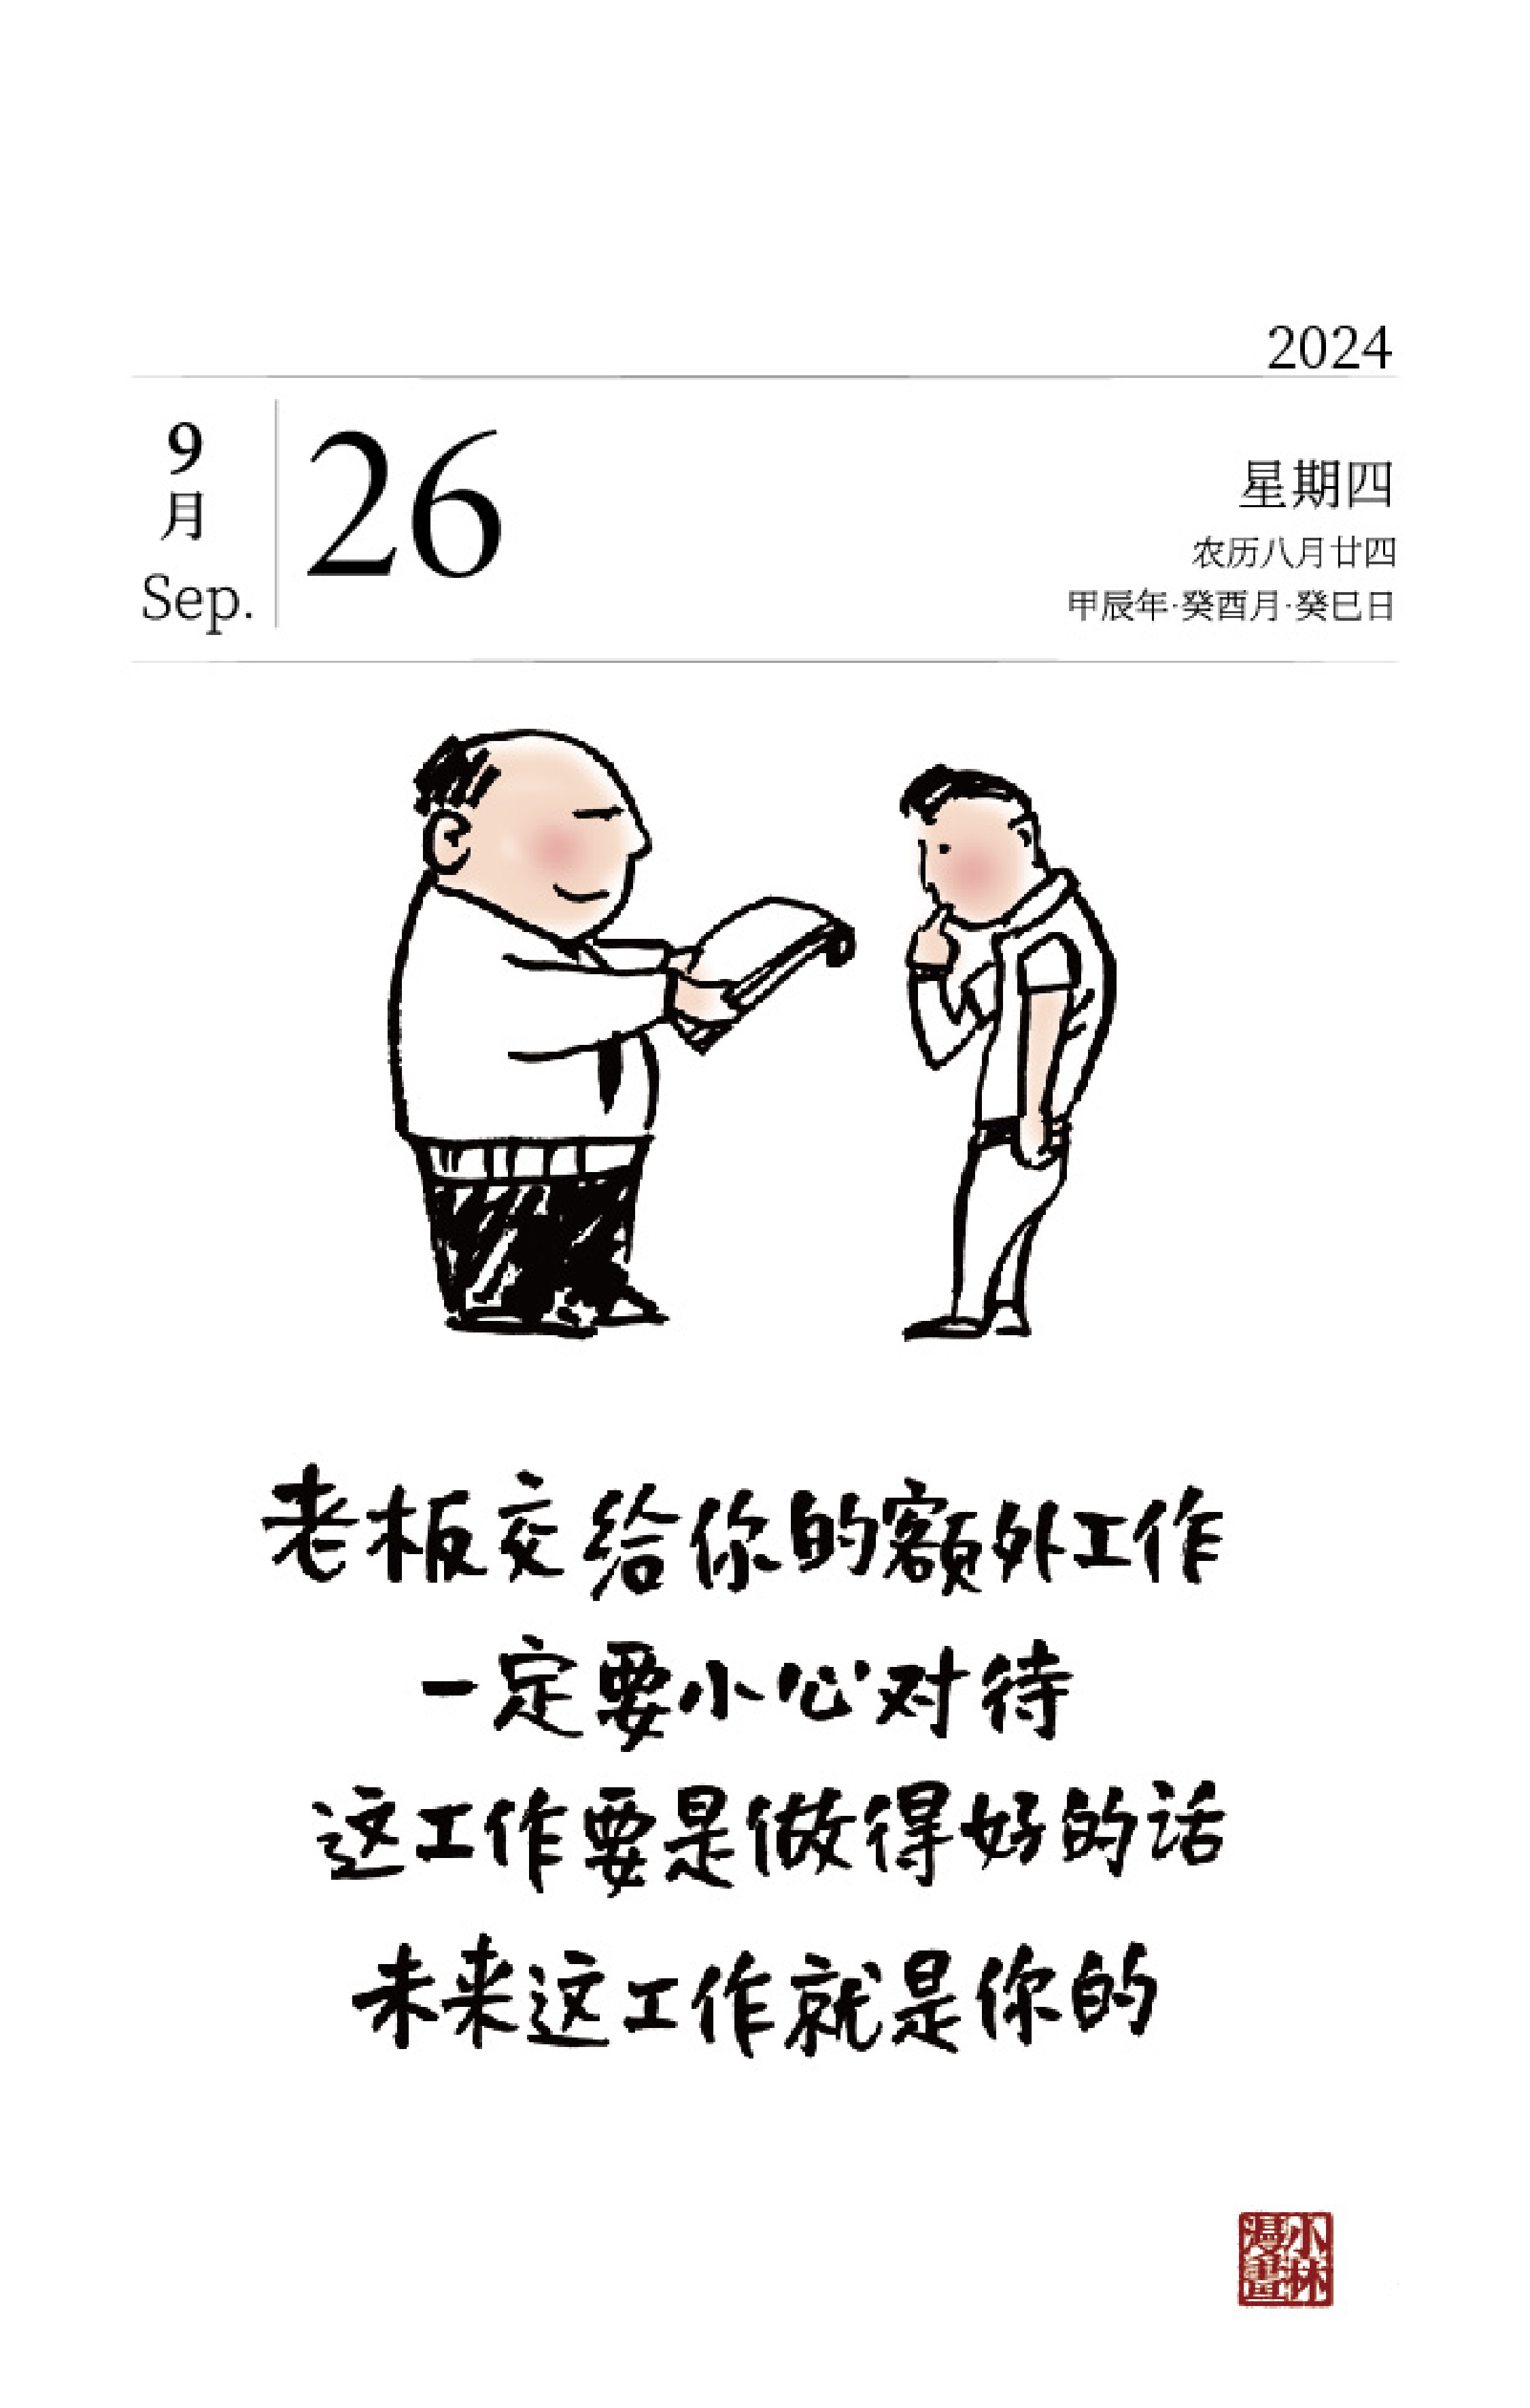 2024
9
月
Sep.
26
星期四
农历八月廿四
甲辰年·癸酉月·癸巳日
老板交给你的额外工作
一定要小心对待
这工作要是做得好的话
未来这工作就是你的
小林
漫畫